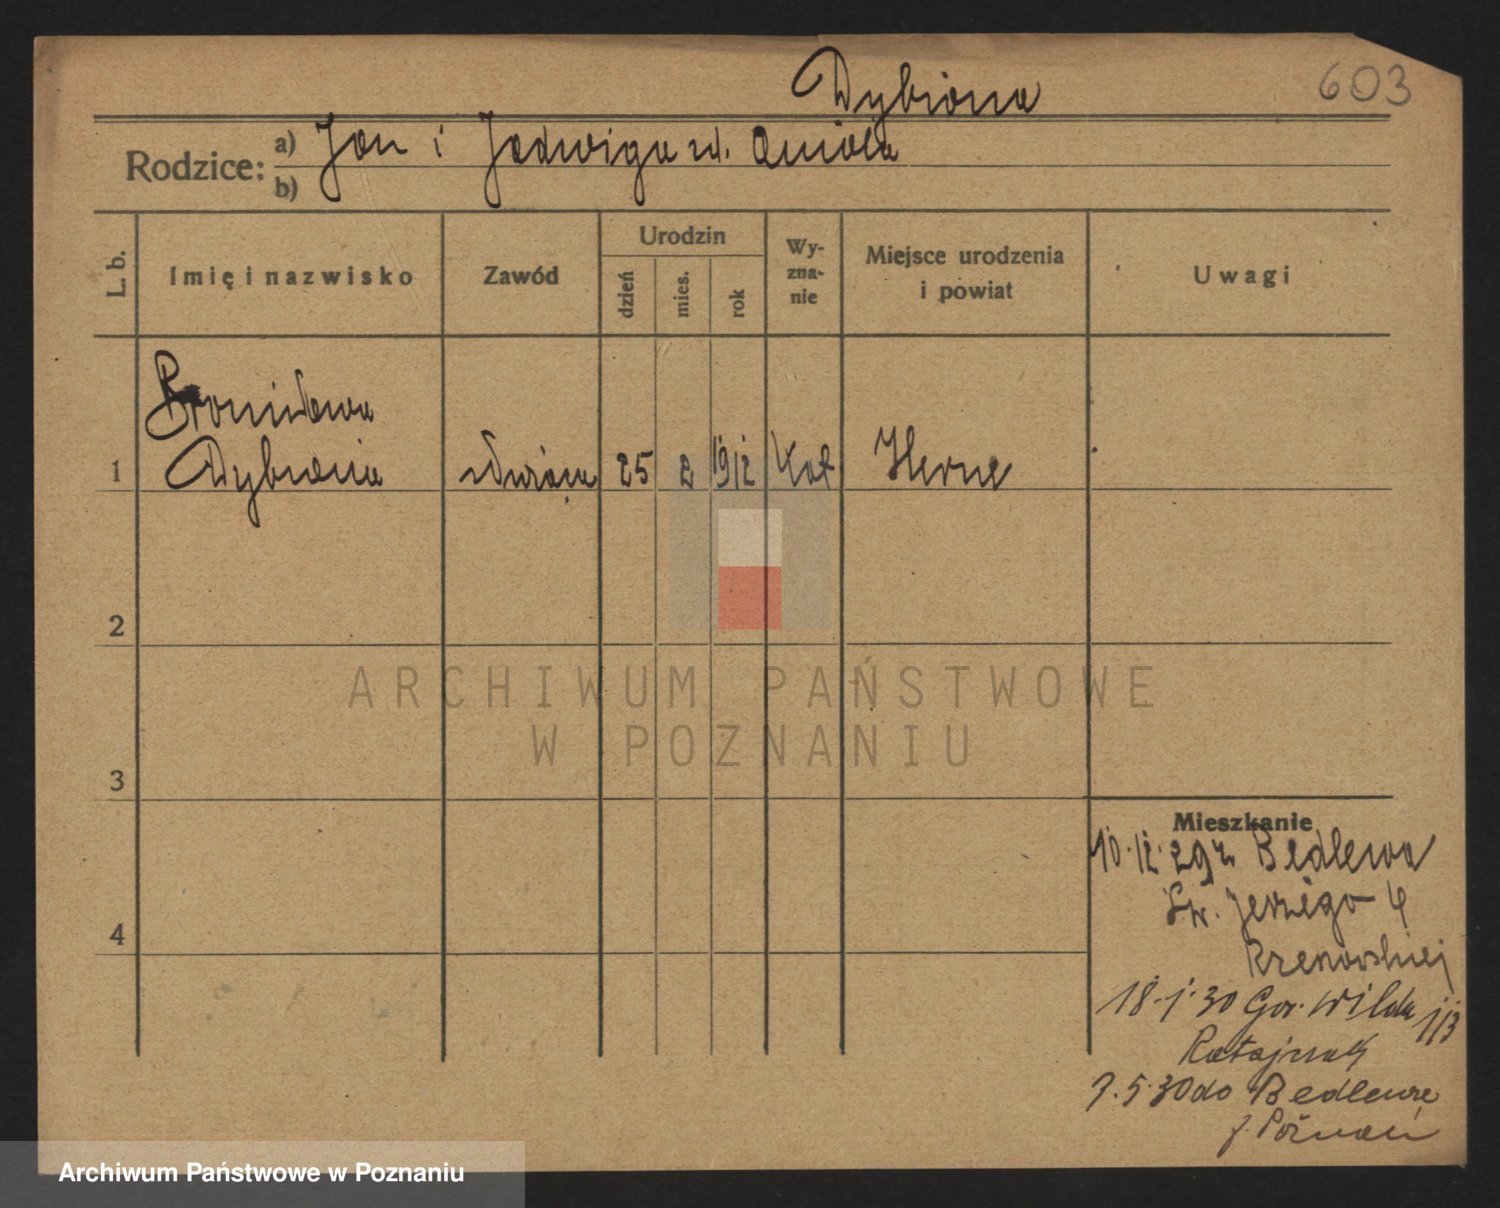 Dybiona
603
Rodzice:
a) Jan i Jadwiga zd. Anioła
b)
L. b.
Imię i nazwisko
Zawód
Urodzin
dzień
mies.
rok
Wy-
zna-
nie
Miejsce urodzenia
i powiat
Uwagi
Bronisława
1 Dybionia służąca 25 2 1912 kat Herne
2
3
4
Mieszkanie
10.12.29 z Bedlewa
Św. Jerzego 4
18.1.30 Gór. Wilda 113
Ratajczak
7.5.30 do Bedlewa
p. Poznań
ARCHIWUM PAŃSTWOWE
W POZNANIU
Archiwum Państwowe w Poznaniu